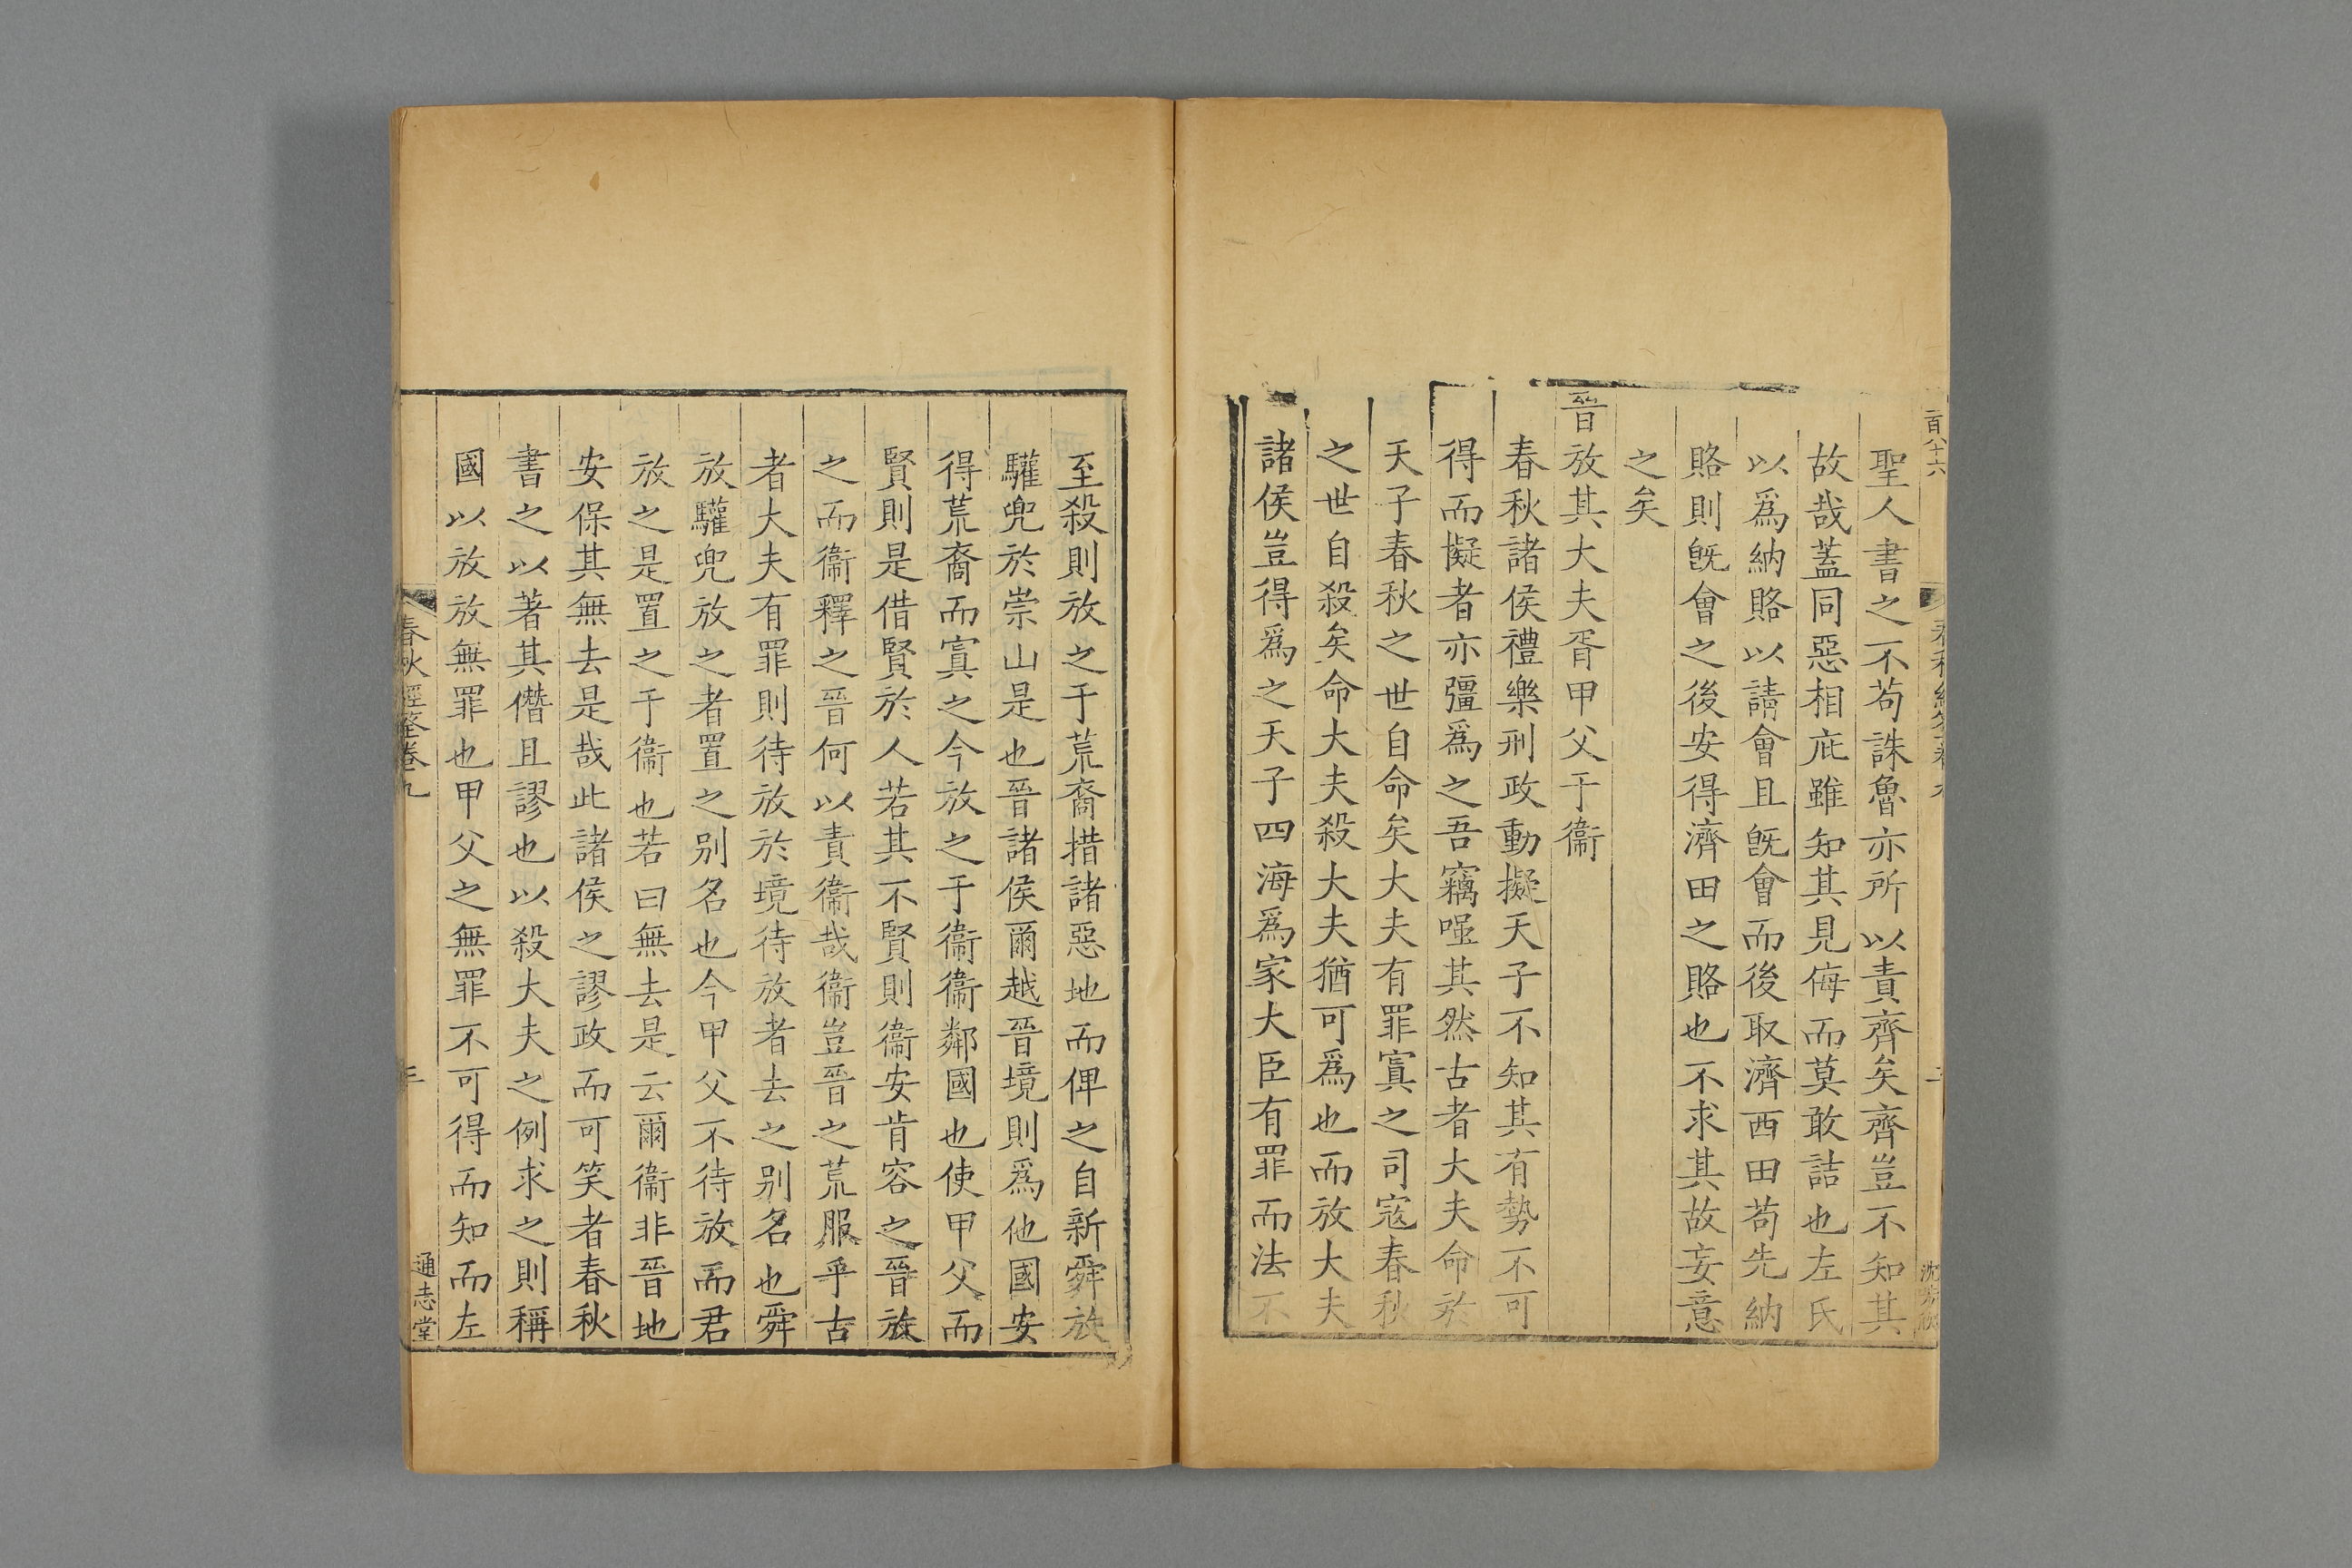 二百八十六
聖人書之不苟誅魯亦所以責齊矣齊豈不知其
故哉蓋同惡相庇雖知其見侮而莫敢詰也左氏
以爲納賂以請會且旣會而後取濟西田苟先納
賂則旣會之後安得濟田之賂也不求其故妄意
之矣
晉放其大夫胥甲父于衞
春秋諸侯禮樂刑政動擬天子不知其有勢不可
得而擬者亦彊爲之吾竊嗤其然古者大夫命於
天子春秋之世自命矣大夫有罪寘之司寇春秋
之世自殺矣命大夫殺大夫猶可爲也而放大夫
諸侯豈得爲之天子四海爲家大臣有罪而法不
至殺則放之于荒裔措諸惡地而俾之自新舜放
驩兜於崇山是也晉諸侯爾越晉境則爲他國安
得荒裔而寘之今放之于衞衞鄰國也使甲父而
賢則是借賢於人若其不賢則衞安肯容之晉放
之而衞釋之晉何以責衞哉衞豈晉之荒服乎古
者大夫有罪則待放於境待放者去之别名也舜
放驩兜放之者置之别名也今甲父不待放而君
放之是置之于衞也若曰無去是云爾衞非晉地
安保其無去是哉此諸侯之謬政而可笑者春秋
書之以著其僭且謬也以殺大夫之例求之則稱
國以放放無罪也甲父之無罪不可得而知而左
春秋經筌卷九
通志堂